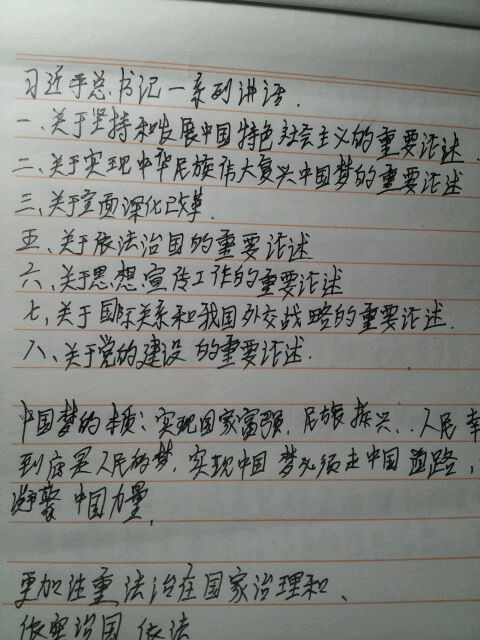 习近平总书记一系列讲话.
一、关于坚持和发展中国特色社会主义的重要论述
二、关于实现中华民族伟大复兴中国梦的重要论述
三、关于全面深化改革.
五、关于依法治国的重要论述
六、关于思想宣传工作的重要论述
七、关于国际关系和我国外交战略的重要论述.
八、关于党的建设的重要论述.
中国梦的本质:实现国家富强、民族振兴、人民幸
到底是人民的梦,实现中国梦必须走中国道路,
凝聚中国力量.
更加注重法治在国家治理和、
依宪治国 依法